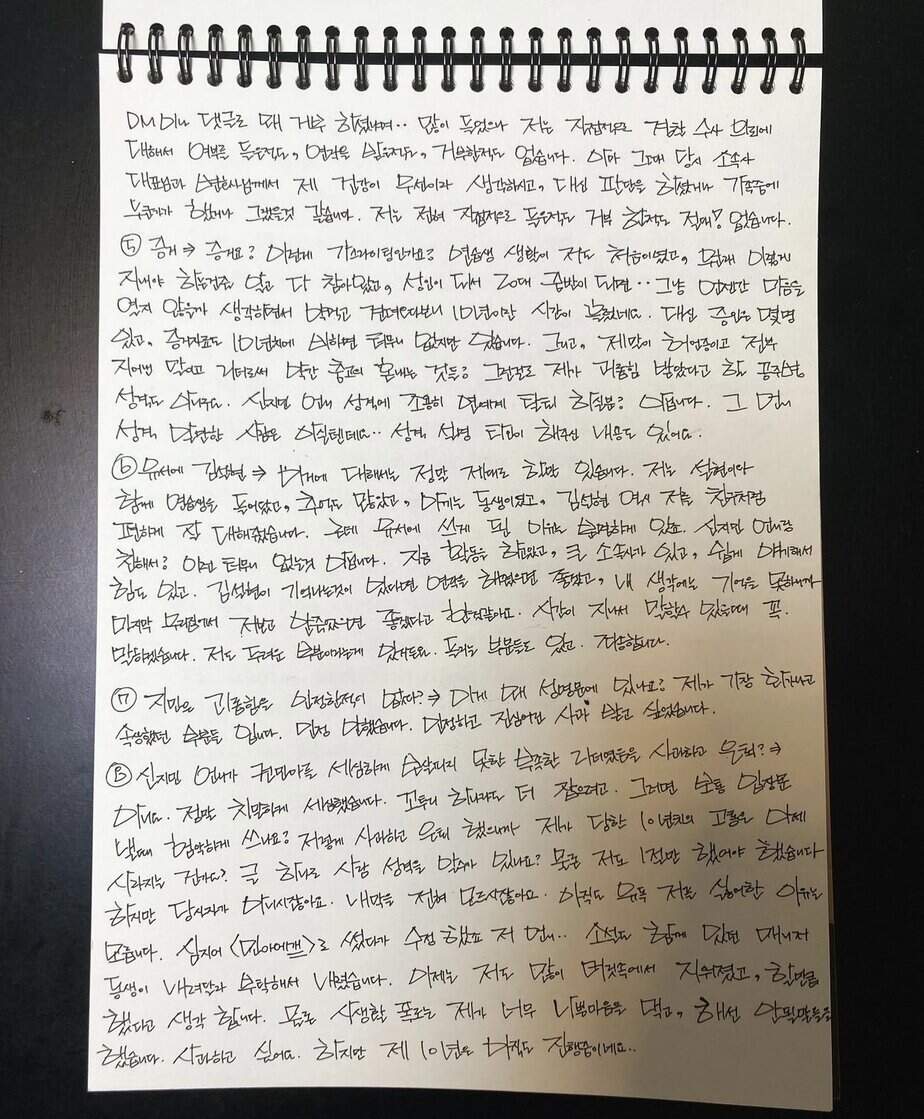 DM이나 댓글로 왜 거부 하셨냐며.. 많이 들었으나 저는 직접적으로 경찰 수사 의뢰에
대해서 여부를 들은적도, 연락을 받은적도, 거부한적도 없습니다. 아마 그때 당시 소속사
대표님과 께서 제 건강이 우선이라 생각하시고, 대신 판단을 하셨거나 가족중에
누군가가 했거나 그랬을것 같습니다. 저는 전혀 직접적으로 들은적도 거부 한적도 절대! 없습니다.
⑤ 증거 ⇒ 증거요? 이런게 가스라이팅인가요? 연습생 생활이 저도 처음이였고, 원래 이렇게
지내야 하는건줄 알고 다 참아왔고, 성인이 되서 20대 중반이 되면.. 그냥 언젠간 마음을
열지 않을까 생각하면서 약먹고 견뎌오다보니 10년이란 시간이 흘렀네요. 대신 증인은 몇명
있고, 증거자료도 10년치에 비하면 터무니 없지만 있습니다. 그리고, 제말이 허언증이고 전부
지어낸 말이고 리더로써 약간 충고의 혼내는 것들? 그런걸로 제가 괴롭힘 받았다고 할 공주병
성격도 아니구요. 신지민 언니 성격에 조용히 연예계 탑티 하실분? 아닙니다. 그 언니
성격 악만한 사람은 아실텐데요.. 성격 설명 티파니 해주신 내용도 있어요.
⑥ 유서에 김설현 ⇒ 이거에 대해서는 정말 제대로 할말 있습니다. 저는 설현이와
함께 연습생을 들어왔고, 추억도 많았고, 아끼는 동생이였고, 김설현 역시 저를 친구처럼
편하게 잘 대해줬습니다. 근데 유서에 쓰게 된 이유는 분명하게 있죠. 신지민 언니랑
친해서? 아뇨 터무니 없는것 아닙니다. 지금 활동을 하고 있고, 큰 소속사가 있고, 쉽게 얘기해서
힘도 있고. 김설현이 기억나는것이 있다면 연락을 해줬으면 좋았고, 내 생각에는 기억을 못하니까
마지막 우리집에서 제보고 알콥있으면 좋겠다고 한것같아요. 시간이 지나서 말할수 있을때 꼭.
말하겠습니다. 저도 두려운 부분이라는게 있거든요. 들키는 부분들도 있고. 죄송합니다.
⑦ 지민은 괴롭힘을 인정한적이 없다? ⇒ 이게 왜 설명문에 있나요? 제가 가장 화가나고
속상했던 부분들 입니다. 인정 안했습니다. 인정하고 진심어린 사과 받고 싶었습니다.
⑧ 신지민 언니가 권민아를 세심하게 보살피지 못한 부족한 리더였음을 사과하고 은퇴? ⇒
아니요. 정말 치밀하게 세심했습니다. 꼬투리 하나라도 더 잡으려고. 그러면 보통 입장문
낼때 험악하게 쓰나요? 저렇게 사과하고 은퇴 했으니까 제가 당한 10년치의 고통은 이제
사라지는 건가요? 글 하나로 사람 성격을 알수가 있나요? 물론 저도 1절만 했어야 했습니다
하지만 당사자가 아니시잖아요. 내막을 전혀 모르시잖아요. 아직도 유독 저를 싫어한 이유는
모릅니다. 심지어 <민아에게>로 썼다가 수정 했죠 저 언니.. 소설도 함께 있던 매니저
동생이 내려달라 부탁해서 내렸습니다. 이제는 저도 많이 머릿속에서 지워졌고, 할만큼
했다고 생각 합니다. 물론 사생활 폭로는 제가 너무 나쁜마음을 먹고, 해선 안될말들을
했습니다. 사과하고 싶어요. 하지만 제 10년은 아직도 진행중이네요..